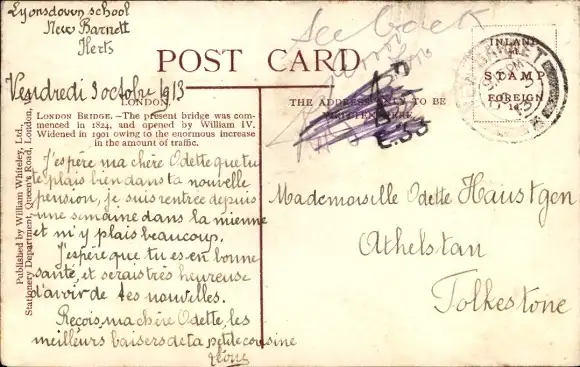 Lyonsdown school
New Barnett
Herts
See back
POST CARD
INLAND
½D
STAMP
FOREIGN
1d.
Vendredi 3 octobre 1913
LONDON.
LONDON BRIDGE. —The present bridge was com-
menced in 1824, and opened by William IV.
Widened in 1901 owing to the enormous increase
in the amount of traffic.
THE ADDRESS ONLY TO BE
WRITTEN HERE
E.S3
Published by William Whiteley, Ltd.,
Stationery Department, Queen's Road, London, W.
J'espère ma chère Odette que tu
te plais bien dans ta nouvelle
pension, je suis rentrée depuis
une semaine dans la mienne
et m'y plais beaucoup.
J'espère que tu es en bonne
santé, et serais très heureuse
d'avoir de tes nouvelles.
Reçois, ma chère Odette, les
meilleurs baisers de ta petite cousine
Mademoiselle Odette Haustgen
Athelstan
Folkestone